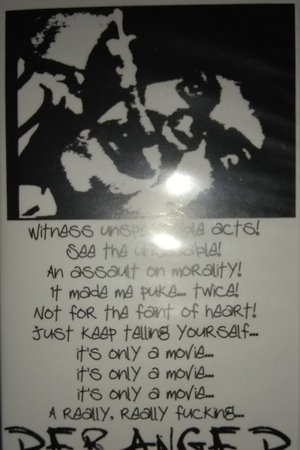 Witness unspeakable acts!
See the unseeable!
An assault on morality!
It made me puke... twice!
Not for the faint of heart!
Just keep telling yourself...
it's only a movie...
it's only a movie...
it's only a movie...
A really, really fucking...
DERANGED